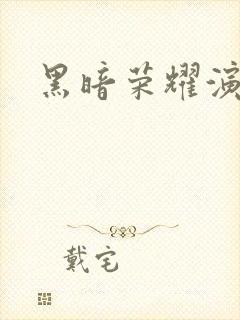 黑暗荣耀演
戴宅